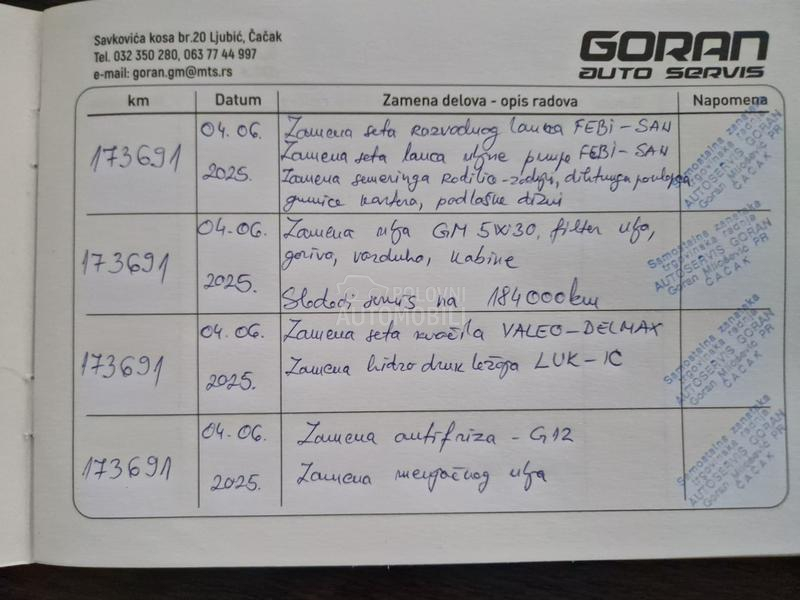 Savkovića kosa br.20 Ljubić, Čačak
Tel. 032 350 280, 063 77 44 997
e-mail: goran.gm@mts.rs
GORAN
AUTO SERVIS
km Datum Zamena delova - opis radova Napomena
173691 04.06. 2025.
Zamena seta razvodnog lanca FEBI-SAN
Zamena seta lanca uljne pumpe FEBI-SAN
Zamena semeringa Radilice-zadnji, dihtunga poklopca
gumice kartera, podloške dizni
Samostalna zanatska
trgovinska radnja
AUTOSERVIS GORAN
Goran Milošević PR
ČAČAK
173691 04.06. 2025.
Zamena ulja GM 5W30, filter ulja,
goriva, vazduha, kabine
Sledeći servis na 184000km
Samostalna zanatska
trgovinska radnja
AUTOSERVIS GORAN
Goran Milošević PR
ČAČAK
POLOVNI
AUTOMOBILI
173691 04.06. 2025.
Zamena seta kvačila VALEO-DELMAX
Zamena hidro druk ležaja LUK-IC
Samostalna zanatska
trgovinska radnja
AUTOSERVIS GORAN
Goran Milošević PR
ČAČAK
173691 04.06. 2025.
Zamena antifriza - G12
Zamena menjačnog ulja
Samostalna zanatska
trgovinska radnja
AUTOSERVIS GORAN
Goran Milošević PR
ČAČAK